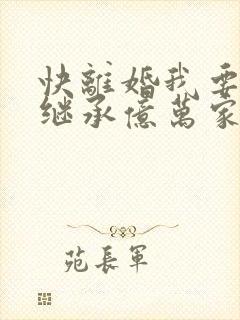 快離婚我要
继承億萬家
苑長軍